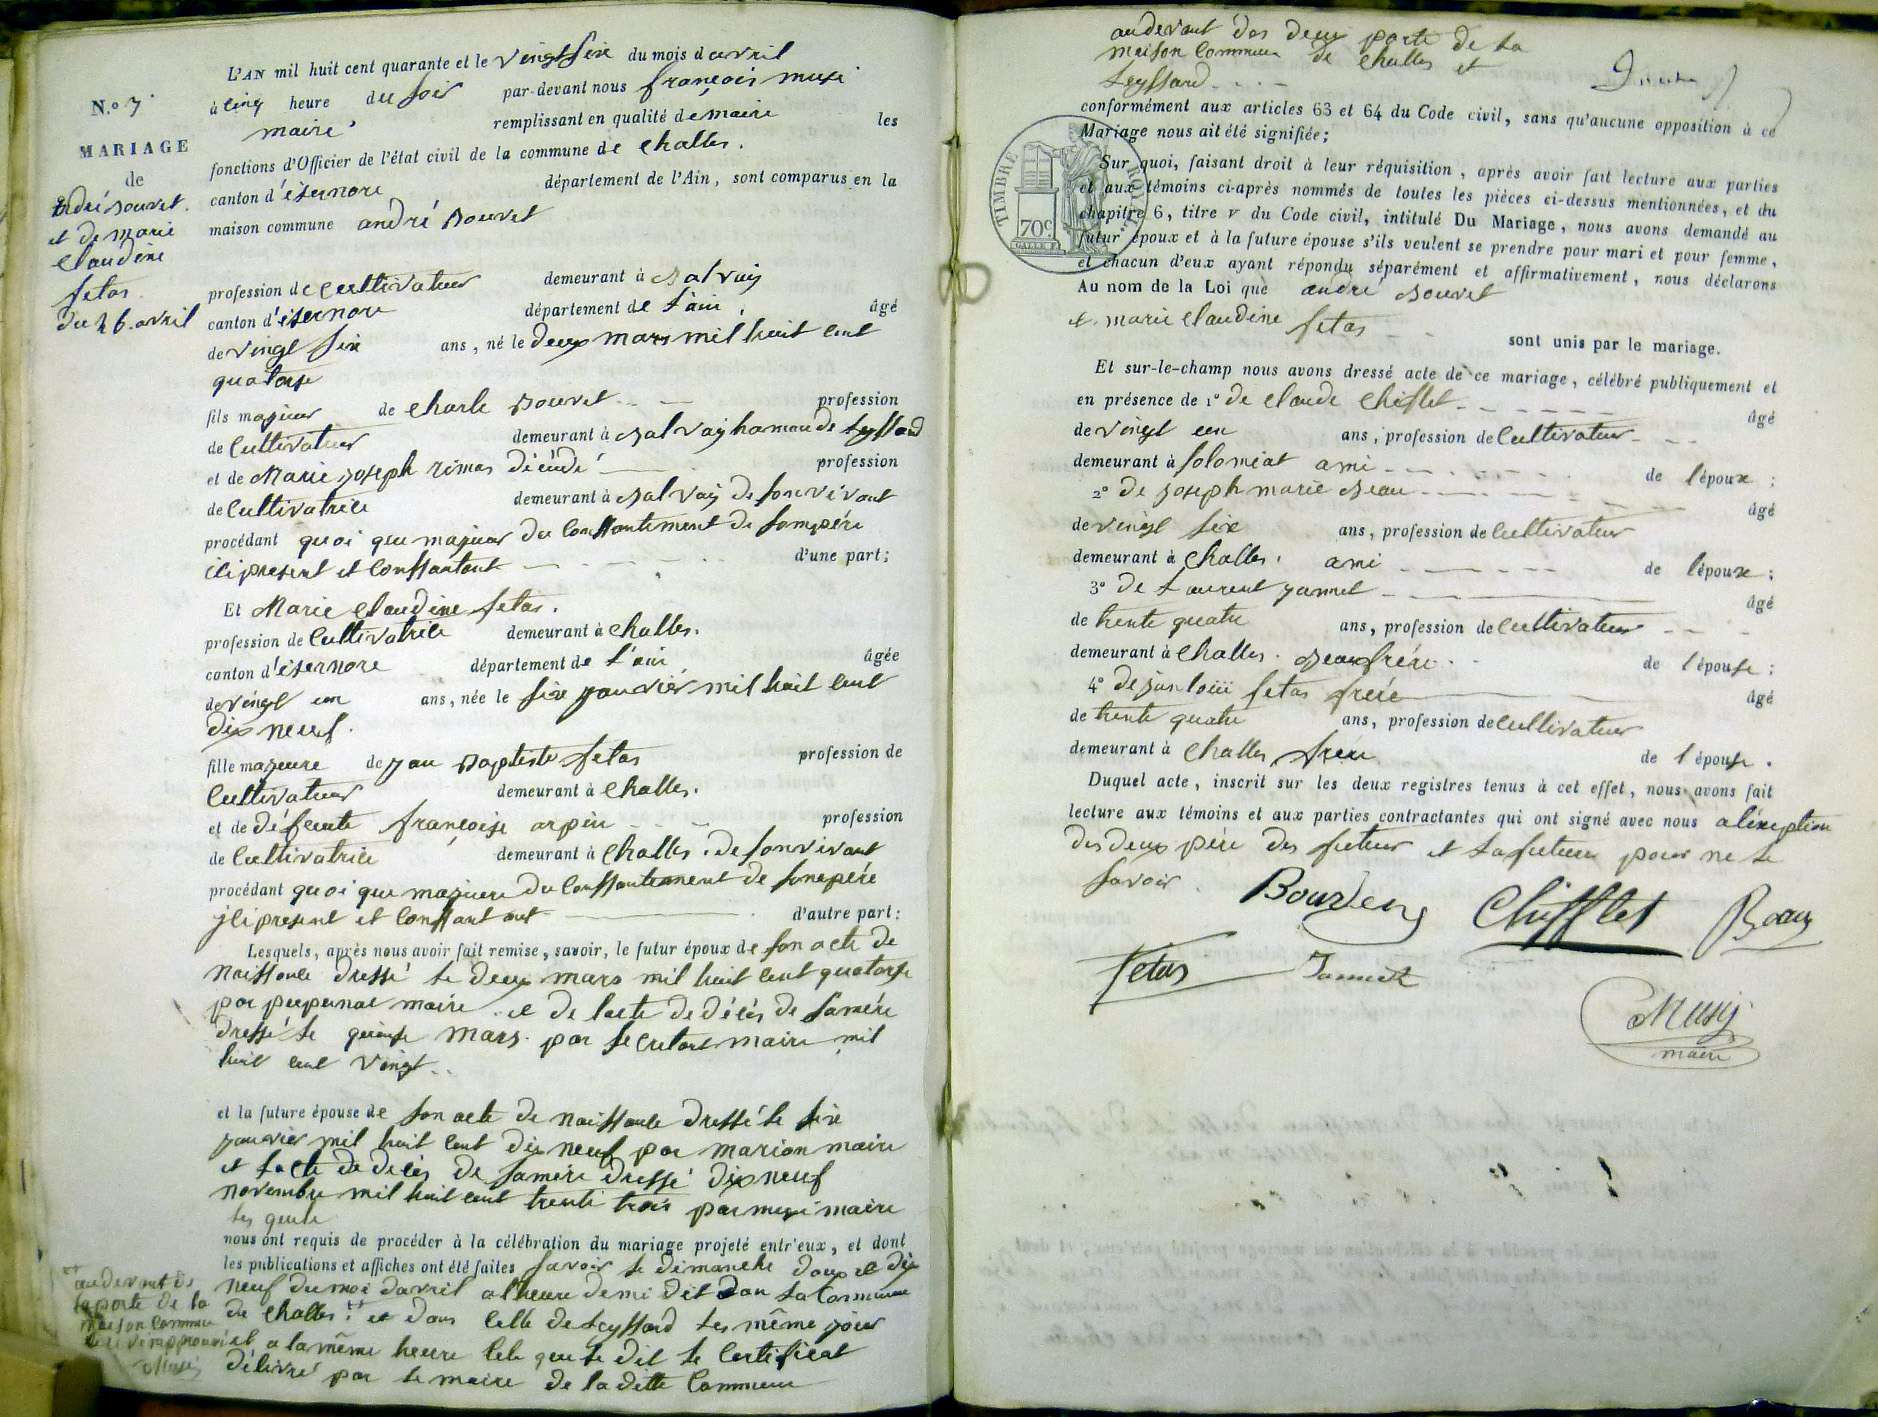 L'AN mil huit cent quarante et le vingt six du mois davril
à cinq heure du soir par-devant nous françois musi
maire remplissant en qualité de maire les
fonctions d'Officier de l'état civil de la commune de challes.
canton d'isernore département de l'Ain, sont comparus en la
maison commune andré Bouvet
N.º 7
MARIAGE
de
andré Bouvet
et de marie
claudine
fetas
du 26 avril
profession de cultivateur demeurant à Balvay
canton d'isernore département de l'ain, âgé
de vingt six ans, né le deux mars mil huit cent
quatorse
fils majeur de charle Bouvet profession
de cultivateur demeurant à Balvay hamau de Leyssard
et de Marie joseph rimas décédé profession
de cultivatrice demeurant à Balvay de son vivant
procédant quoi que majeur du conssantement de sompére
ici present et conssantant d'une part;
Et Marie claudine fetas.
profession de cultivatrice demeurant à challes.
canton d'isernore département de l'ain âgée
de vingt un ans, née le six janvier mil huit cent
dix neuf.
fille majeure de jan Baptiste fetas profession de
cultivateur demeurant à challes.
et de défeunte françoise arpin profession
de cultivatrice demeurant à challes. de sonvivant
procédant quoi que majeure du conssantement de sonpére
ici present et conssantant d'autre part;
Lesquels, après nous avoir fait remise, savoir, le futur époux de son acte de
naissance dressé le deux mars mil huit cent quatorse
par maire et de lacte de décès de samére
dressé le quinse mars par maire mil
huit cent vingt
et la future épouse de son acte de naissance dressé le six
janvier mil huit cent dix neuf par marion maire
et lacte de decès de samére dressé dix neuf
novembre mil huit cent trente trois par musi maire
les quels
nous ont requis de procéder à la célébration du mariage projeté entr'eux, et dont
les publications et affiches ont été faites savoir le dimanche douse et dix
neuf du moi davril a l'heure de mi di dan la commune
de challes. et dans celle de Leyssard les même jour
et a la même heure cele que le dit le certificat
délivré par le maire de la ditte commune
au devant de
laporte de la
maison commune
Musi
au devant des deux porte de la
maison commune de challes et
Leyssard
conformément aux articles 63 et 64 du Code civil, sans qu'aucune opposition à ce
Mariage nous ait été signifiée;
TIMBRE ROYAL
70c
Sur quoi, faisant droit à leur réquisition, après avoir fait lecture aux parties
et aux témoins ci-après nommés de toutes les pièces ci-dessus mentionnées, et du
chapitre 6, titre v du Code civil, intitulé Du Mariage, nous avons demandé au
futur époux et à la future épouse s'ils veulent se prendre pour mari et pour femme,
et chacun d'eux ayant répondu séparément et affirmativement, nous déclarons
Au nom de la Loi que andré Bouvet
et marie claudine fetas
sont unis par le mariage.
Et sur-le-champ nous avons dressé acte de ce mariage, célébré publiquement et
en présence de 1º de claude chifflet âgé
de vingt un ans, profession de cultivateur
demeurant à solomiat ami de l'époux;
2º de joseph marie Beau âgé
de vingt six ans, profession de cultivateur
demeurant à challes. ami de l'époux;
3º de Laurent jannet âgé
de trente quatre ans, profession de cultivateur
demeurant à challes. Beaufrére de l'épouse;
4º de janloui fetas freré âgé
de trente quatre ans, profession de cultivateur
demeurant à challes frére de l'épouse.
Duquel acte, inscrit sur les deux registres tenus à cet effet, nous avons fait
lecture aux témoins et aux parties contractantes qui ont signé avec nous aléxeption
des deux pére des futeur et la futeure pour ne le
savoir.
Chifflet Beau
fetas Jannet
Musy
maire